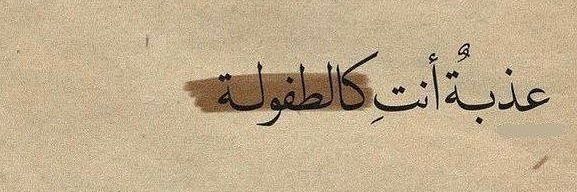 عذبةٌ أنتِ كالطفولة